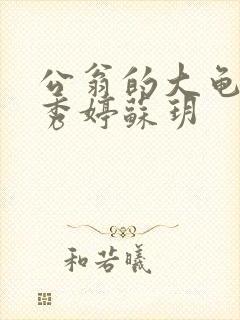 公翁的大龟
秀婷蘇玥
和若曦